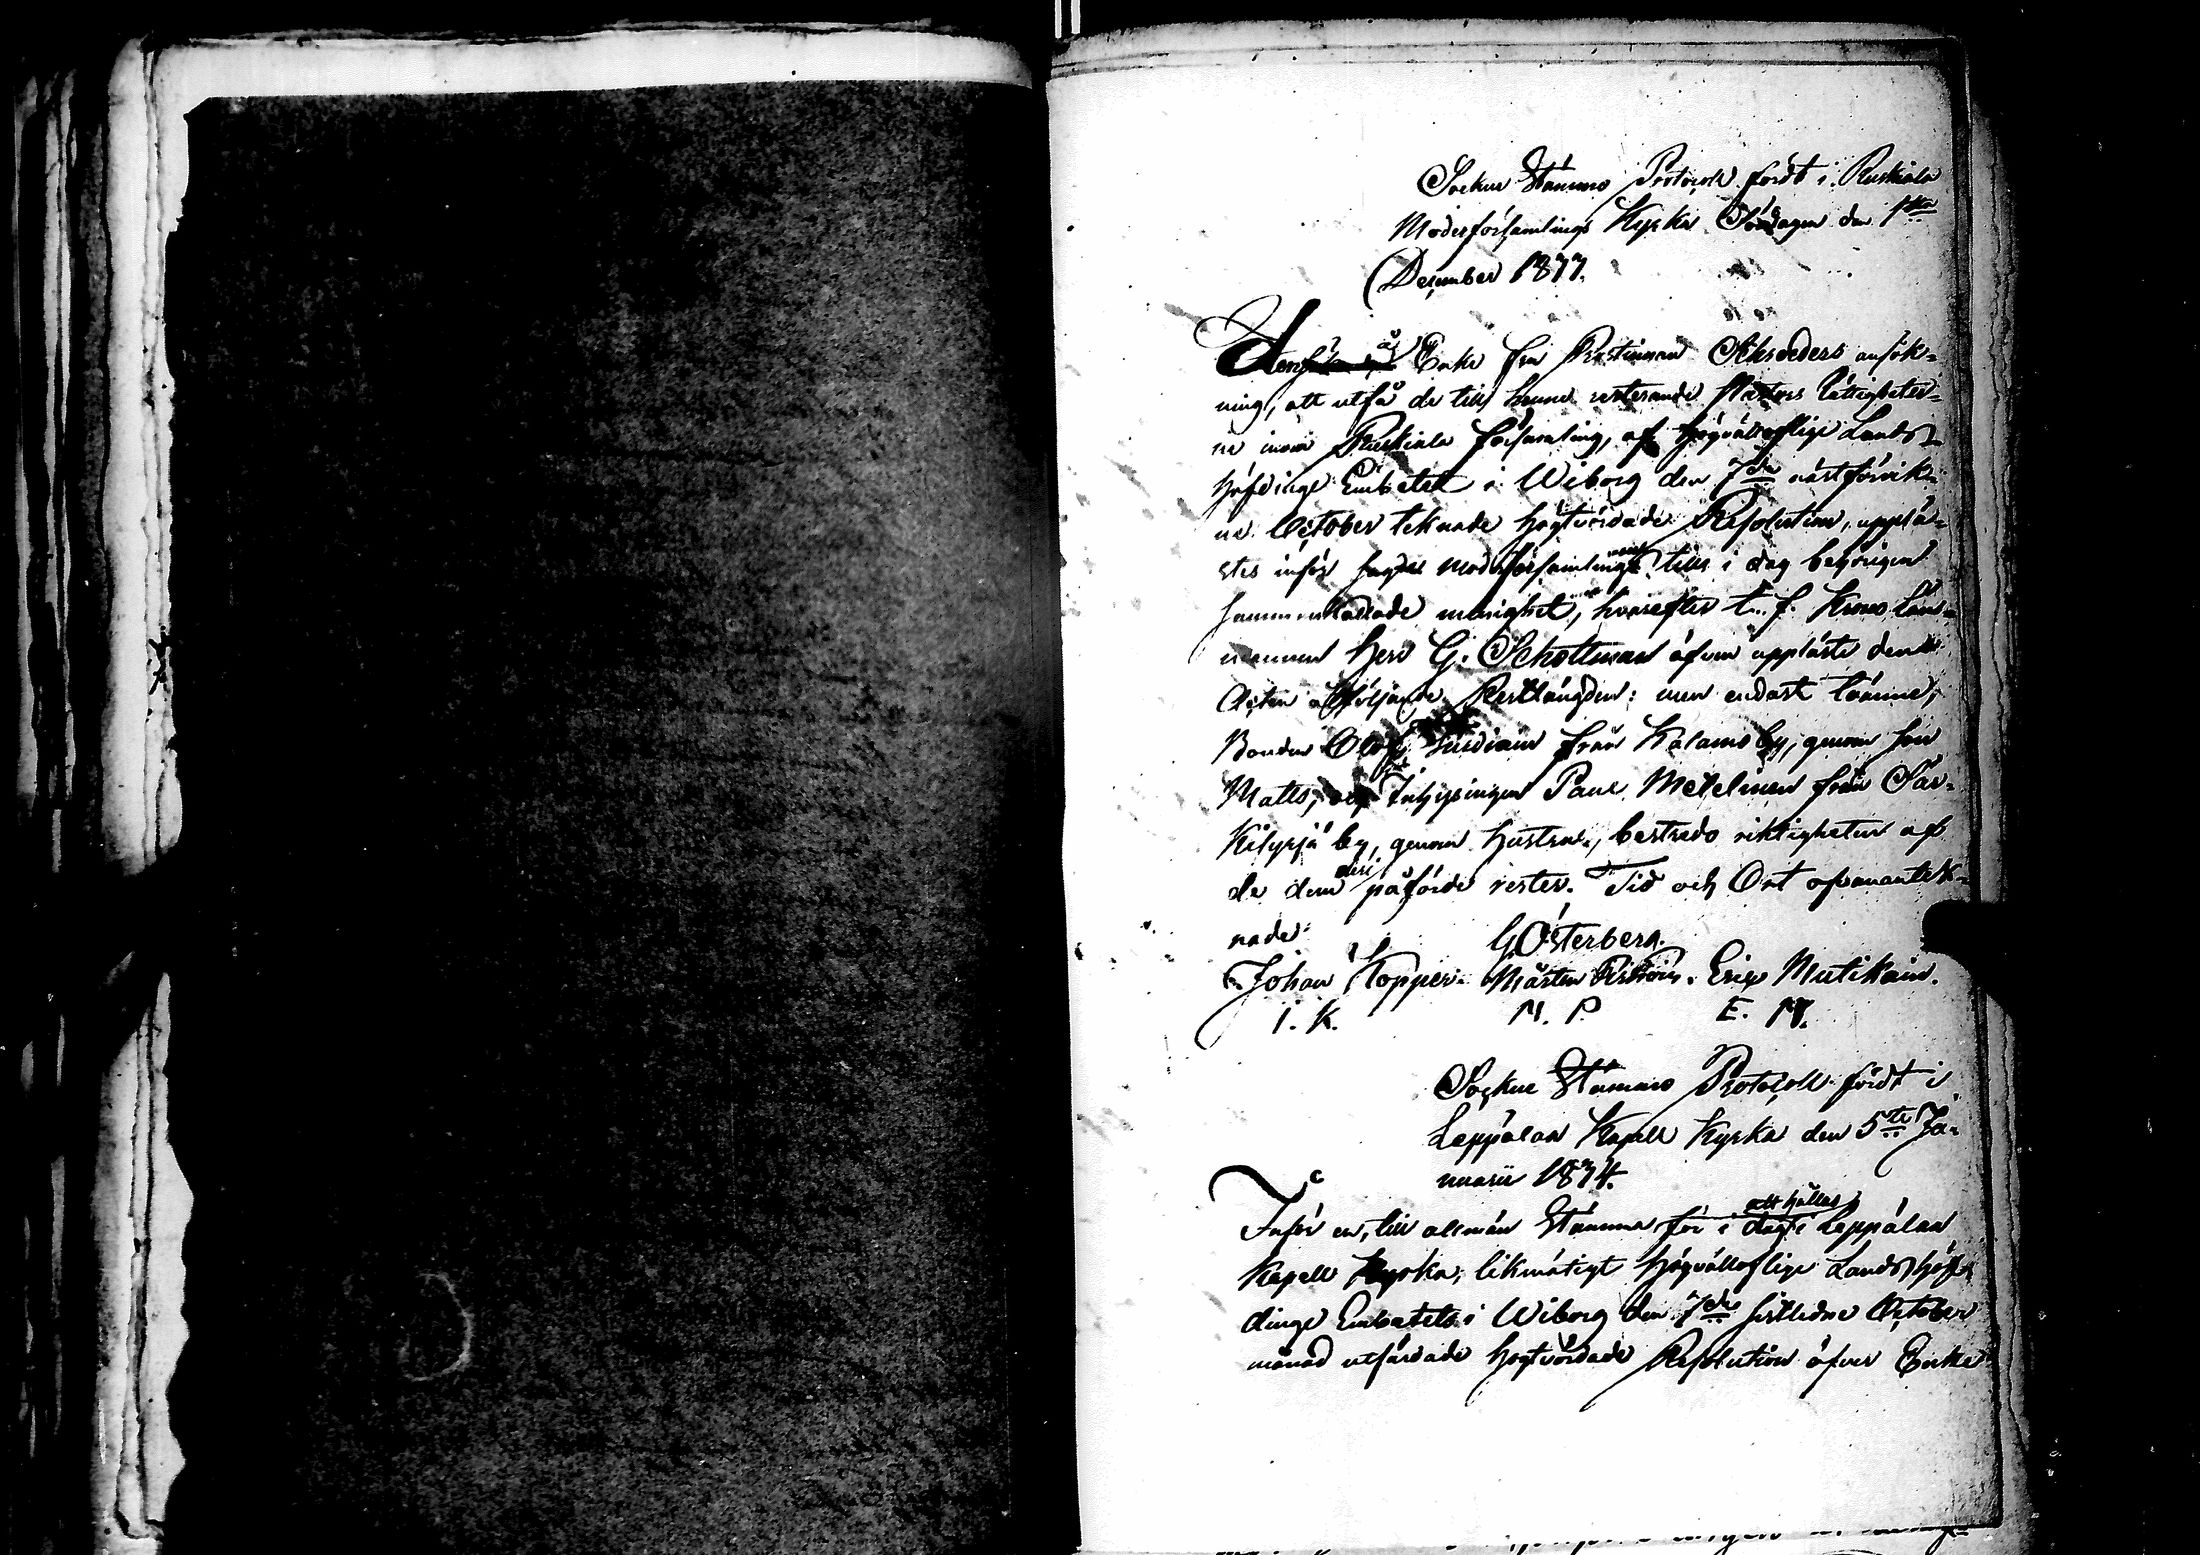 Sockne Stämmo Protocoll fördt i Ruskiala
Moderförsamlings Kyrka Söndagen den 1sta
December 1833.
å Enke fru Prostinnan Schroeders ansök-
ning, att utfå de till henne resterande rättigheter-
ne inom Ruskiala församling, af Högvälloflige Lands-
höfdinge Embetet i Wiborg den 7de nästförvik-
ne October teknade högtvördade Resolution, upplä-
stes inför moderförsamlingens till i dag behörigen
sammankallade menighet, hvarefter t. f. Krono Läns-
mannen Herr G. Schottman äfven uppläste den
Acten åtföljande Restlängden: men endast tvänne,
Bonden Olof från Kalamo by, genom son
Matts, och Inhysingen Paul Metelinen från Sär-
kisyrjä by, genom hustrun, bestredo riktigheten af
de dem deri påförde rester. Tid och Ort ofvanantek-
nade.
G. Österberg.
Johan Kopper. Mårten Erik Mutikain.
I. K. M. P. E. M.
Sockne Stämmo Protocoll fördt i
Leppälax Kapell Kyrka den 5te Ja-
nuarii 1834.
Inför en, till allmän Stämma för i dag att hållas i Leppälax
Kapell Kyrka, likmätigt Högvälloflige Landshöf-
dinge Embetets i Wiborg den 7de sistledne October
månad utfärdade högtvördade Resolution öfver Enke